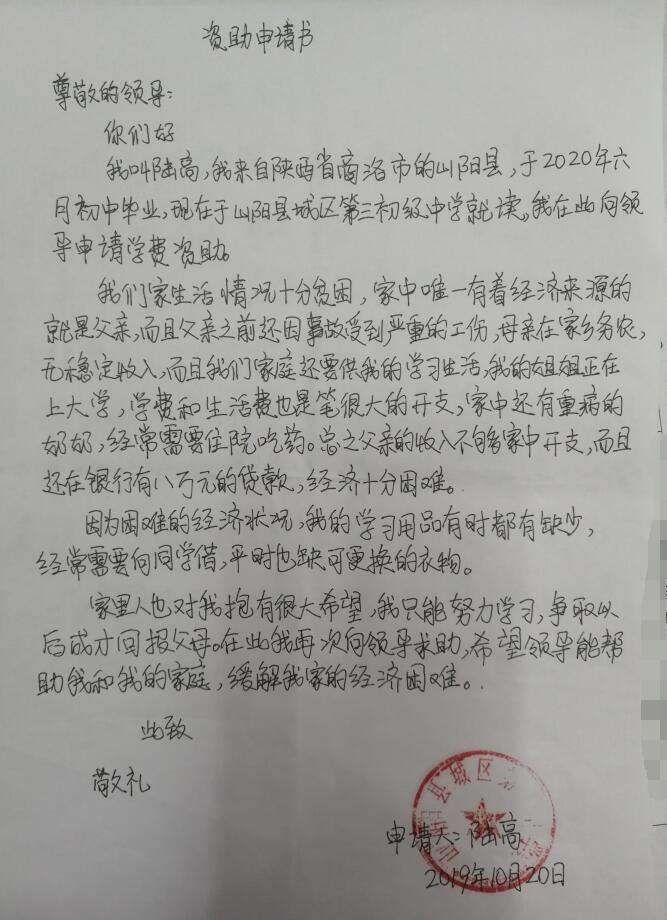 资助申请书
尊敬的领导：
你们好
我叫陆高，我来自陕西省商洛市的山阳县，于2020年六
月初中毕业，现在于山阳县城区第三初级中学就读。我在此向领
导申请学费资助。
我们家生活情况十分贫困，家中唯一有着经济来源的
就是父亲，而且父亲之前还因事故受到严重的工伤，母亲在家乡务农，
无稳定收入，而且我们家庭还要供我的学习生活，我的姐姐正在
上大学，学费和生活费也是笔很大的开支，家中还有重病的
奶奶，经常需要住院吃药。总之父亲的收入不够家中开支，而且
还在银行有八万元的贷款，经济十分困难。
因为困难的经济状况，我的学习用品有时都有缺少，
经常需要向同学借，平时也缺可更换的衣物。
家里人也对我抱有很大希望，我只能努力学习，争取以
后成才回报父母。在此我再次向领导求助，希望领导能帮
助我和我的家庭，缓解我家的经济困难。
此致
敬礼
山阳县城区第
申请人：陆高
2019年10月20日